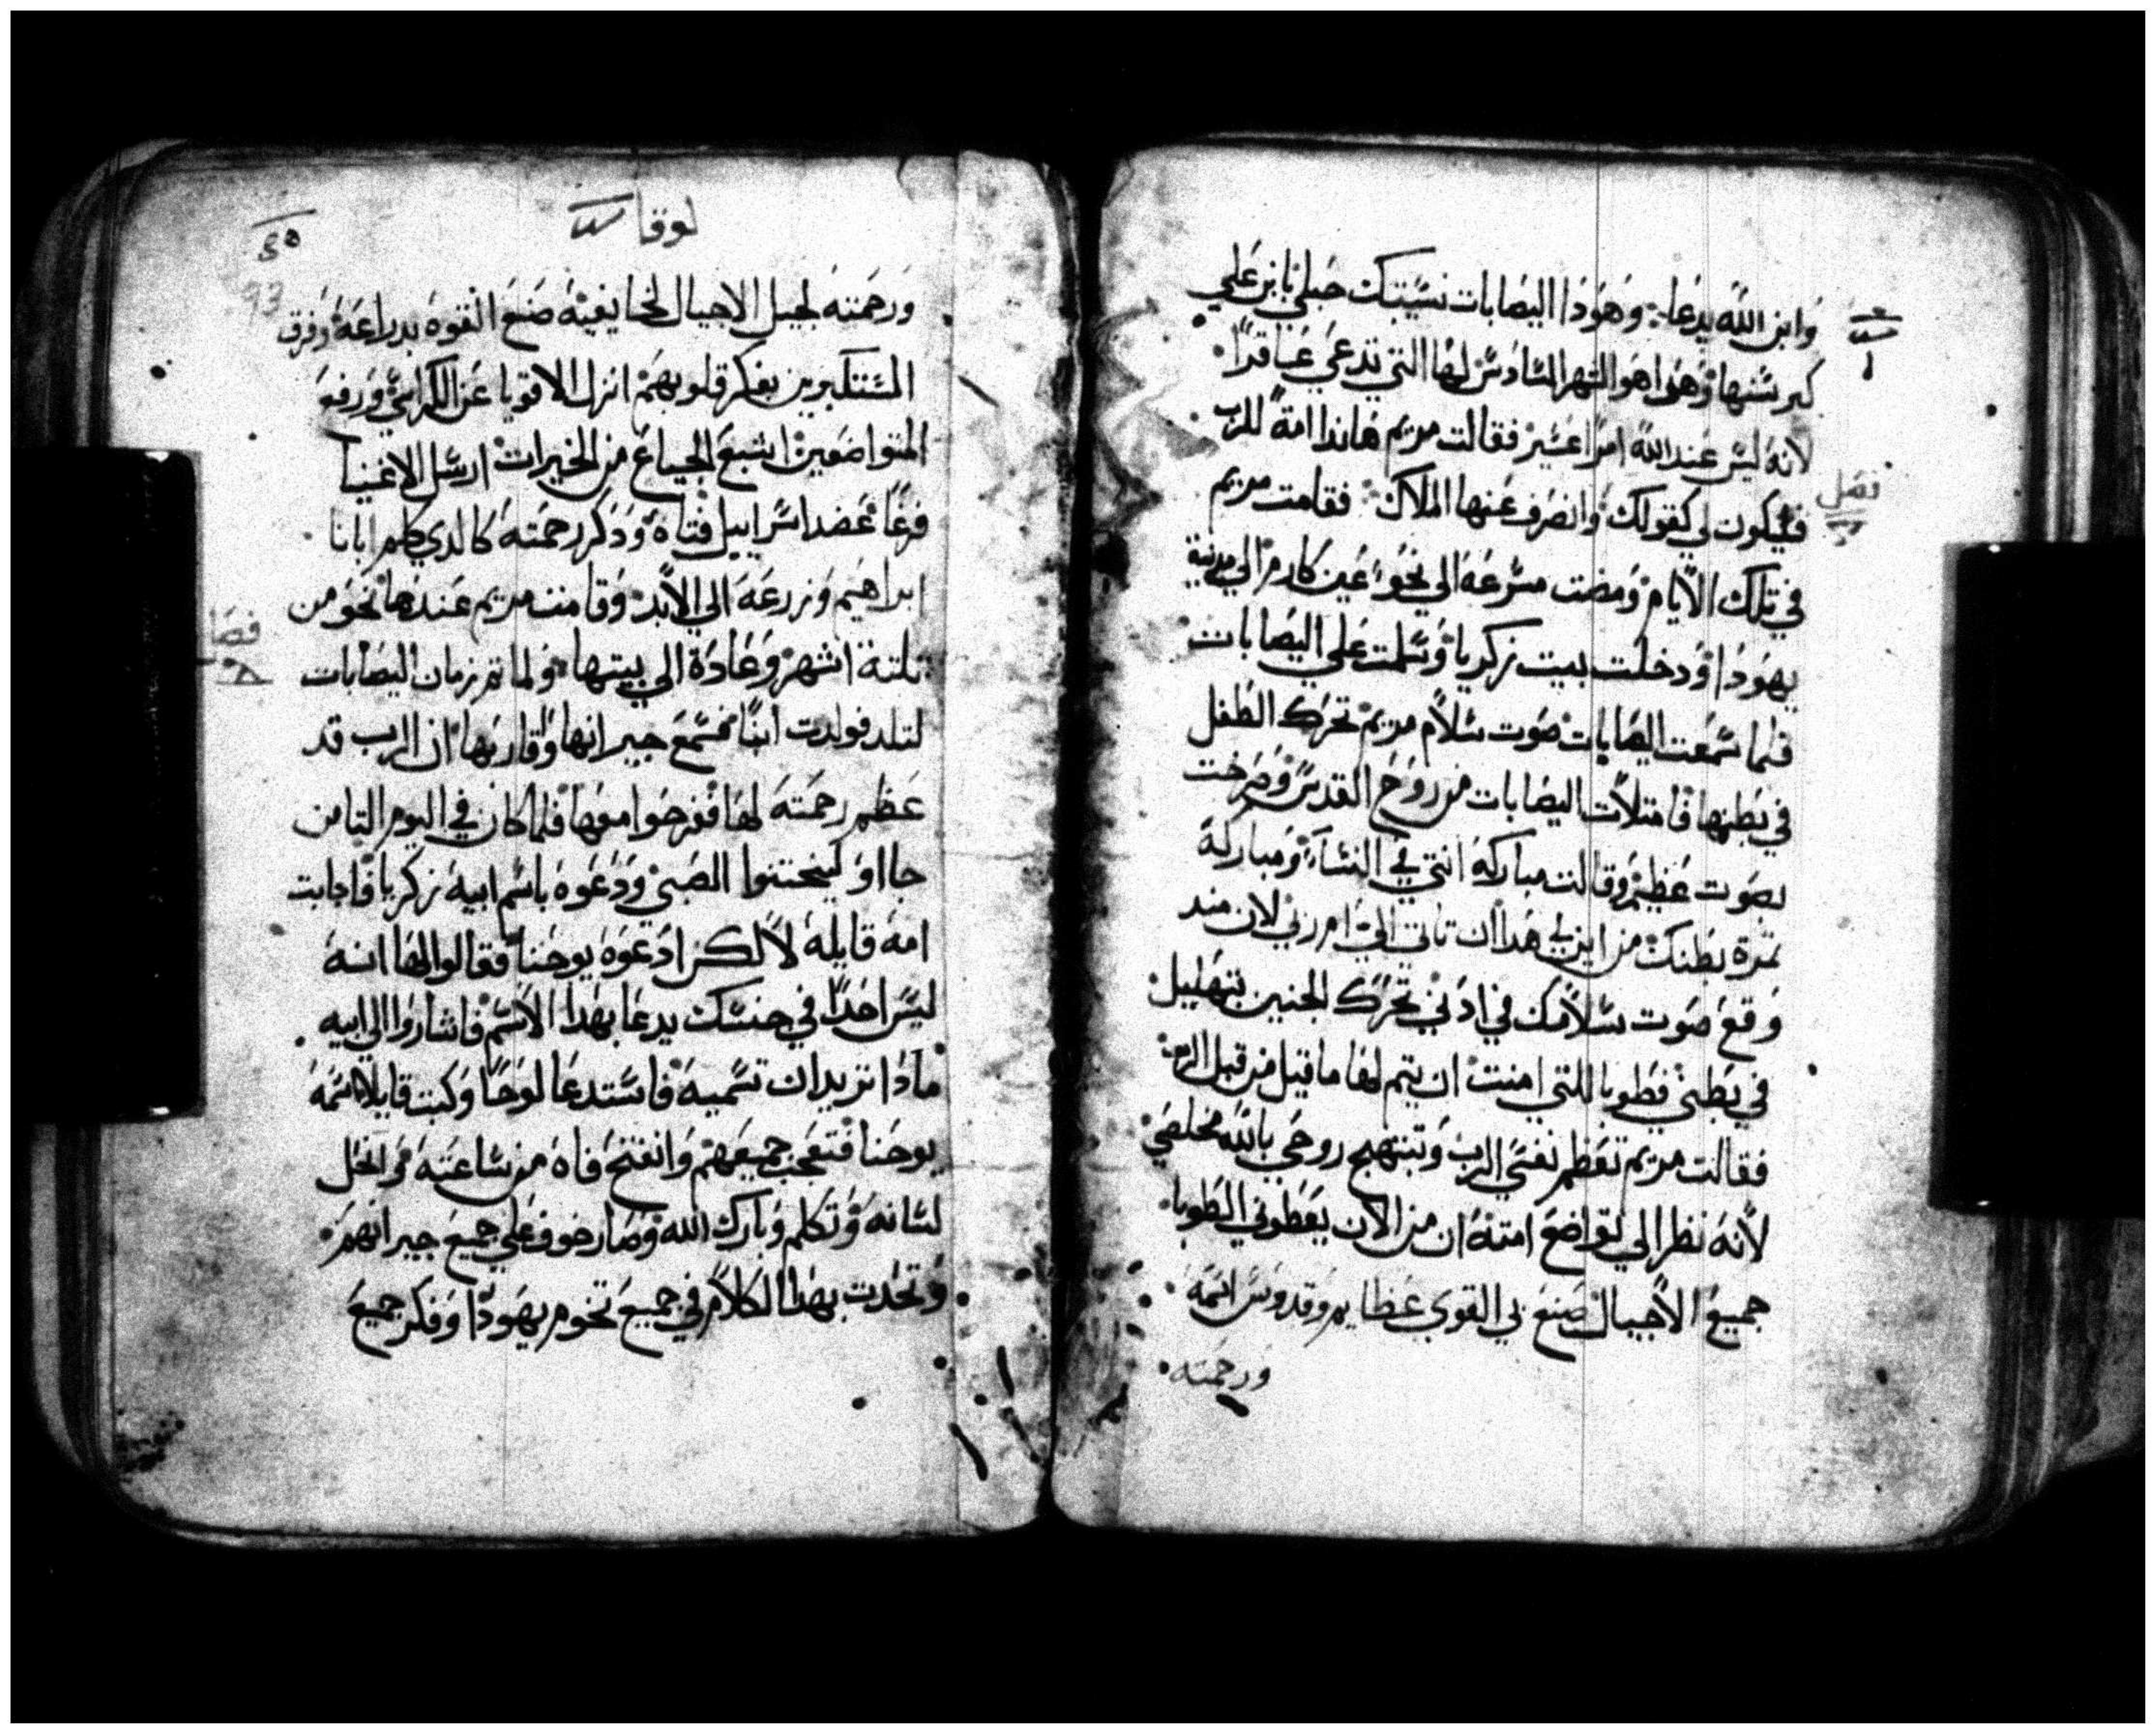 وابن الله يدعا وهودا اليصابات نسيبتك حبلي بابن علي
كبر سنها وهوا هو الشهر السادس لها التي تدعي عاقرا
لانه ليس عند الله امرا عسير فقالت مريم هاندا امة للرب
فصل
فليكون لي كقولك وانصرف عنها الملاك فقامت مريم
في تلك الايام ومضت مسرعه الي نحو عين كارم الي مدينة
يهودا ودخلت بيت زكريا وسلمت علي اليصابات
فلما سمعت اليصابات صوت سلام مريم تحرك الطفل
في بطنها فامتلات اليصابات من روح القدس وصرخت
بصوت عظيم وقالت مباركه انتي في النساء ومباركة
تمرة بطنك من اين لي هدا ان تاتي الي ام ربي لان مند
وقع صوت سلامك في ادني تحرك الجنين بتهليل
في بطني فطوبا للتي امنت ان يتم لها ما قيل من قبل الرب
فقالت مريم تعظم نفسي الرب وتبتهج روحي بالله مخلصي
لانه نظر الي تواضع امته ان من الان يعطوني الطوبا
جميع الاجيال صنع بي القوي عظايم وقدوس اسمه
ورحمته
لوقا
ورحمته لجيل الاجيال لخايفيه صنع القوه بدراعه وفرق
المستكبرين بفكر قلوبهم انزل الاقويا عن الكراسي ورفع
المتواضعين اشبع الجياع من الخيرات ارسل الاغنيا
فرغا عضد اسراييل فتاه ودكر رحمته كالدي كلم ابانا
ابراهيم وزرعه الي الابد وقامت مريم عندها نحو من
فصل
تلتة اشهر وعادة الي بيتها ولما تم زمان اليصابات
لتلد فولدت ابنا فسمع جيرانها واقاربها ان الرب قد
عظم رحمته لها ففرحوا معها فلما كان في اليوم التامن
جااو ليختنوا الصبي ودعوه باسم ابيه زكريا فاجابت
امه قايله لا لكن ادعوه يوحنا فقالوا لها انه
ليس احدا في جنسك يدعا بهدا الاسم فاشاروا الي ابيه
مادا تريد ان تسميه فاستدعا لوحا وكتب قايلا اسمه
يوحنا فتعجب جميعهم وانفتح فاه من ساعته وانحل
لسانه وتكلم وبارك الله وصار خوف علي جميع جيرانهم
وتحدت بهدا الكلام في جميع تخوم يهودا وفكر جميع